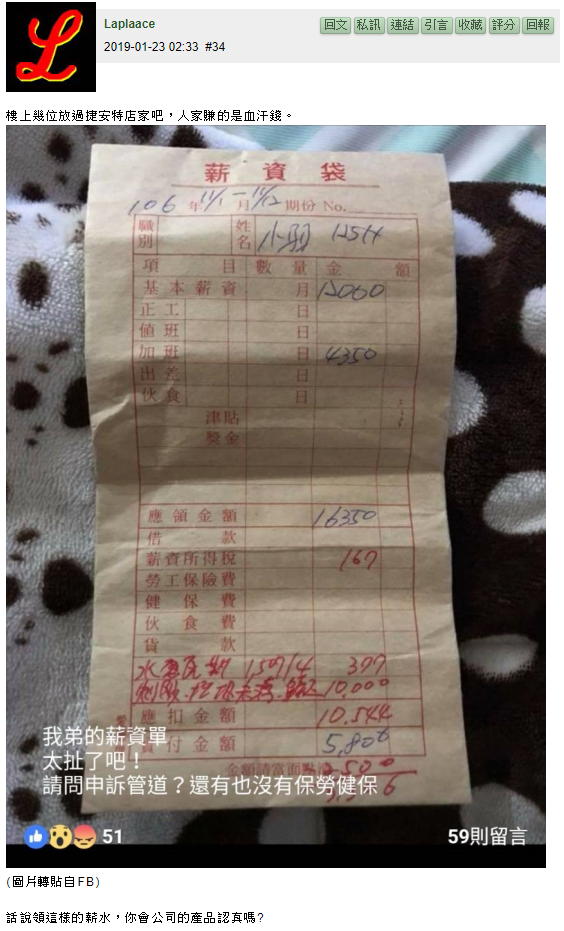 Laplaace
回文 私訊 連結 引言 收藏 評分 回報
2019-01-23 02:33 #34
樓上幾位放過捷安特店家吧，人家賺的是血汗錢。
薪資袋
106 年 11/1 月 - 11/12 期份 No.
職別 姓名 小羽
項目 數量 金額
基本薪資 月 12000
正工 日
值班 日
加班 日 4350
出差 日
伙食 日
津貼
獎金
應領金額 16350
借款
薪資所得稅 167
勞工保險費
健保費
伙食費
貨款
水電瓦斯 1509/4 377
10,000
應扣金額 10,544
付金額 5,806
金額請當面點
我弟的薪資單
太扯了吧！
請問申訴管道？還有也沒有保勞健保
51
59則留言
(圖片轉貼自FB)
話說領這樣的薪水，你會公司的產品認真嗎?